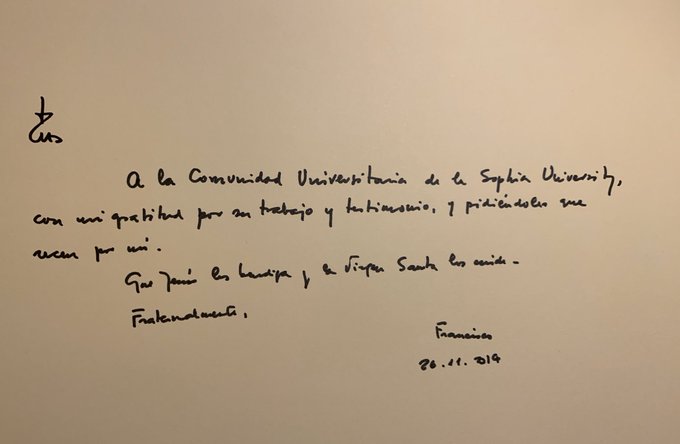 A la Comunidad Universitaria de la Sophia University,
con mi gratitud por su trabajo y testimonio, y pidiéndoles que
recen por mí.
Que Jesús los bendiga y la Virgen Santa los cuide.
Fraternalmente,
Francisco
26.11.2019